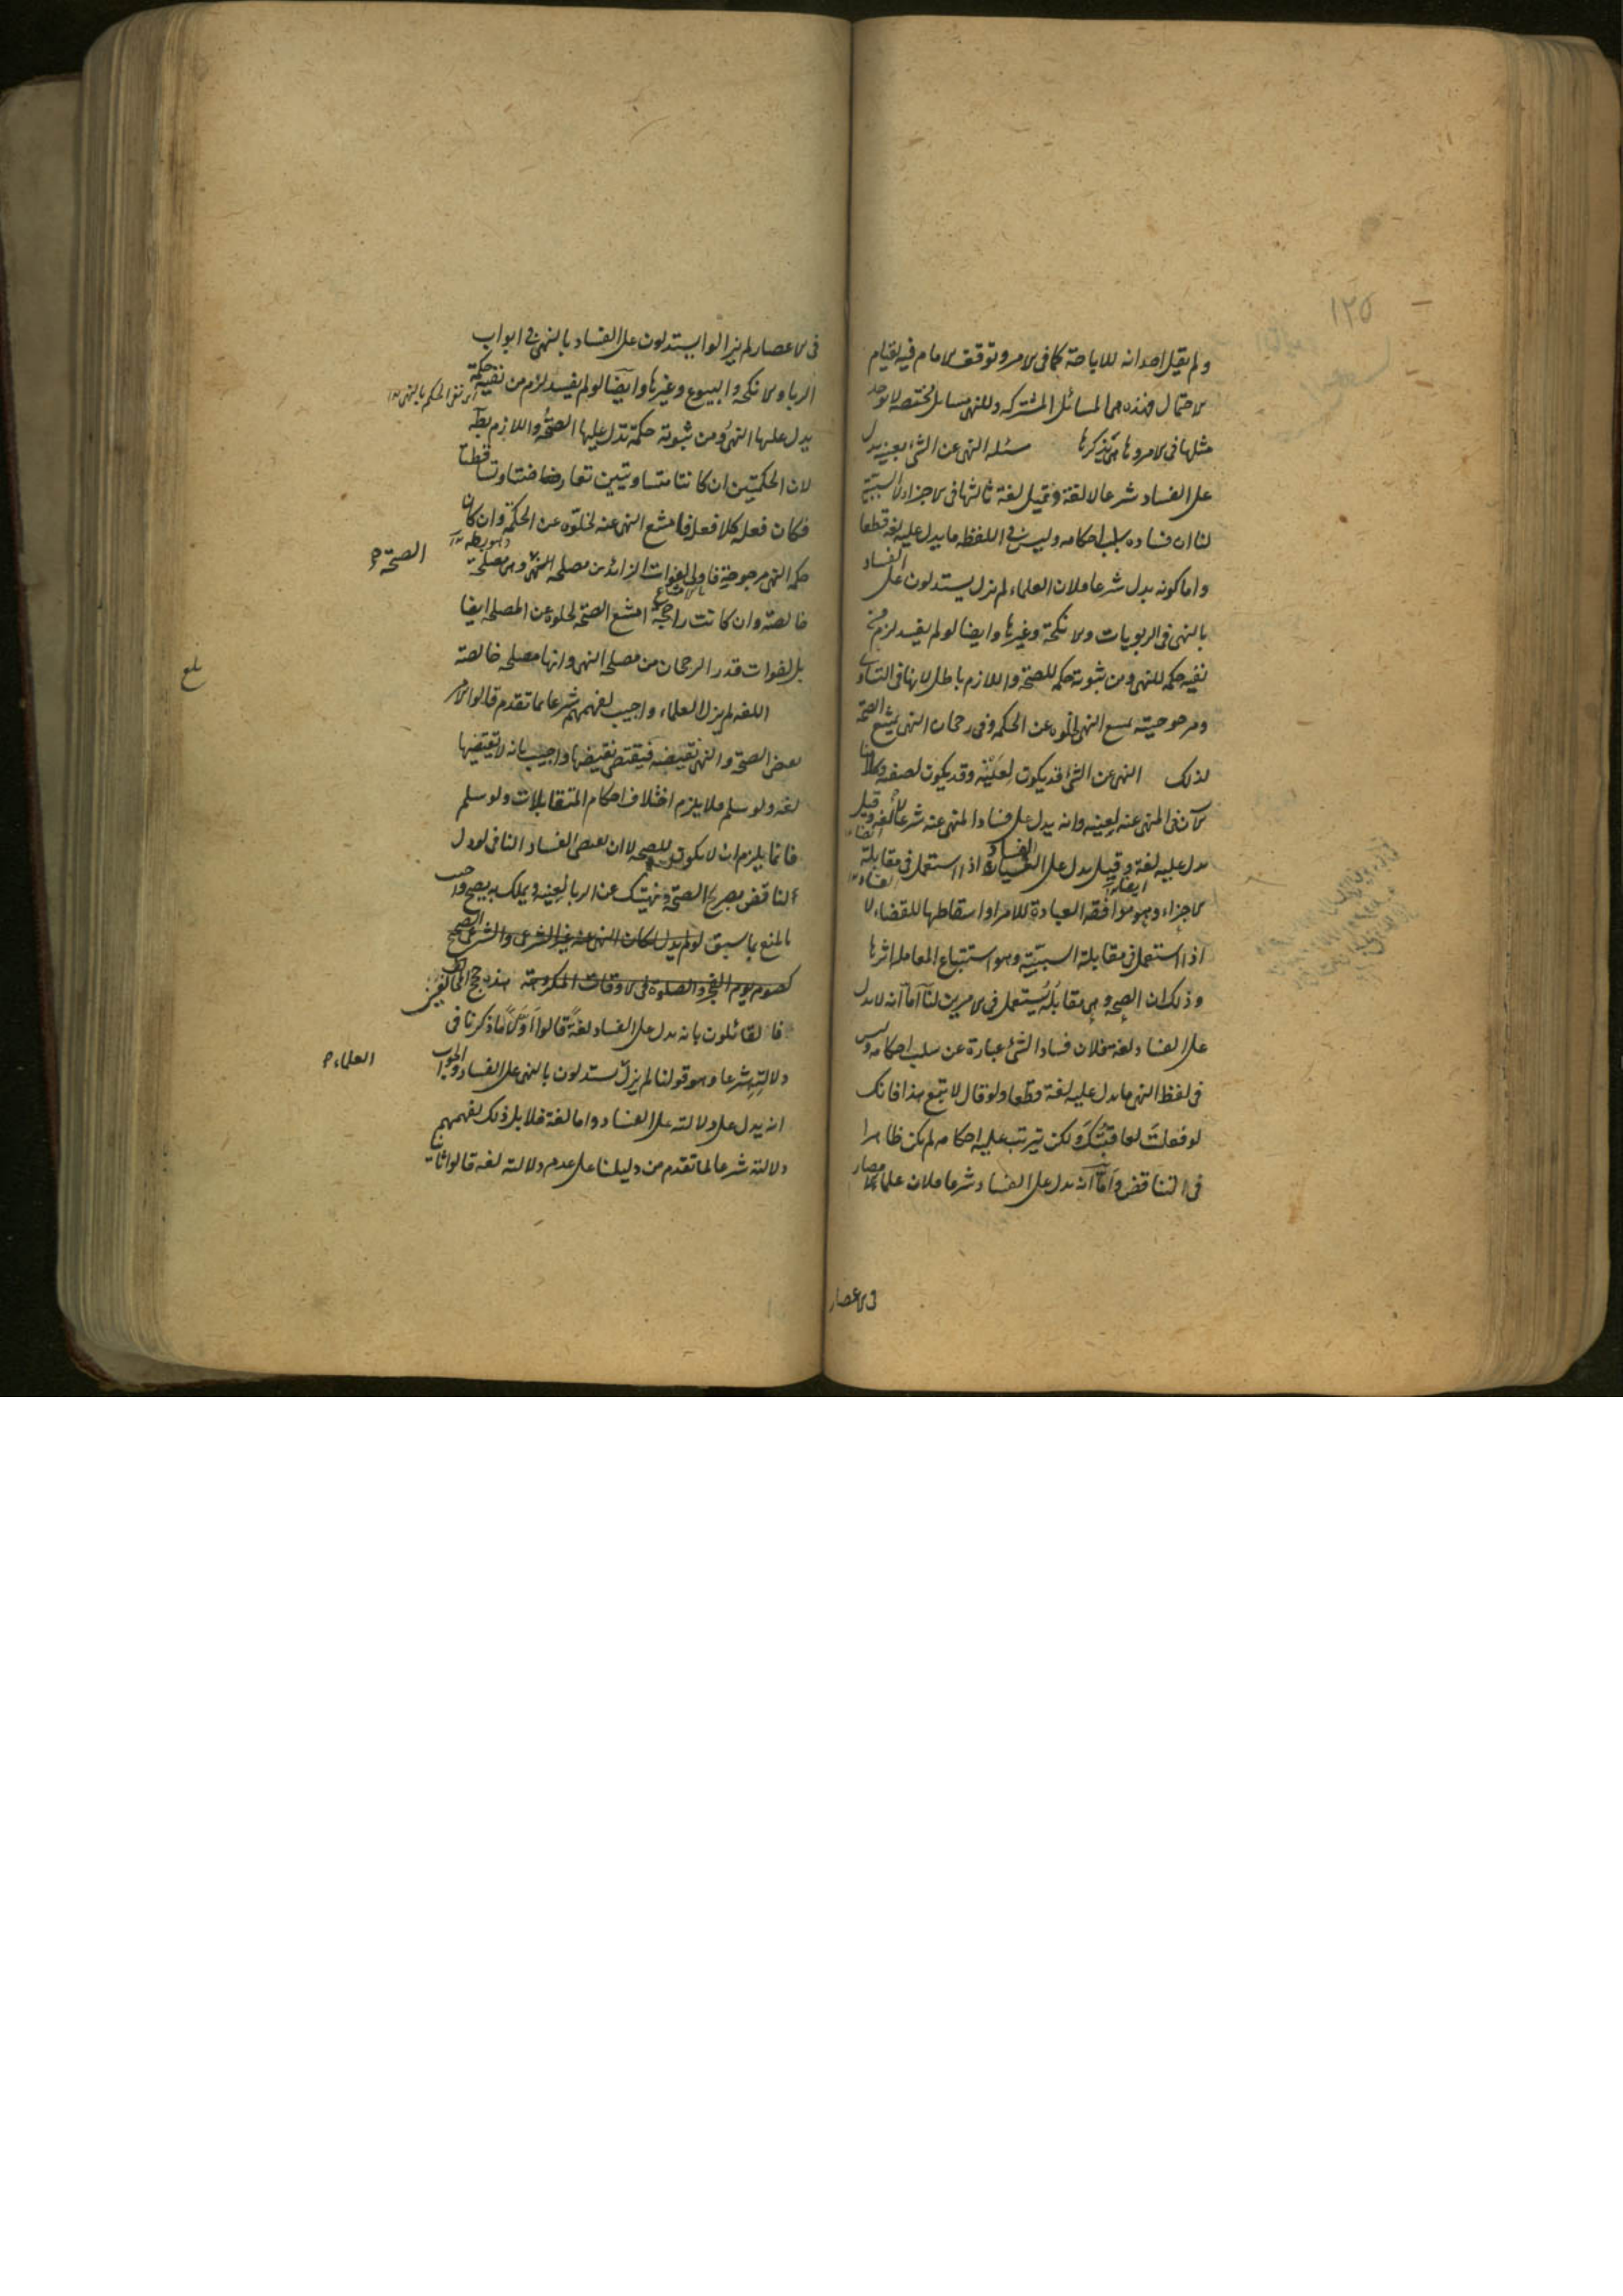 ١٢٥
ولم يقل احد انه للاباحة كما في الامر وتوقف الامام فيه لقيام
الاحتمال فهذه هي المسائل المشتركه وللنهي مسائل مختصه لا يوجد
مثلها في الامر وها هي نذكرها مسئله النهي عن الشئ بعينه يدل
على الفساد شرعا لا لغة وقيل لغة ثالثها في الاجزاء لا السببية
لنا ان فساده سلب احكامه وليس في اللفظ ما يدل عليه لغة قطعا
واما كونه يدل شرعا فلان العلماء لم تزل يستدلون على الفساد
بالنهى في الربويات والانكحة وغيرها وايضا لو لم يفسد لزم من
نفيه حكمه للنهي ومن ثبوته حكمه للصحة واللازم باطل لانها في التساوي
ومرجوحيته يمنع النهي لخلوه عن الحكمه وفي رجحان النهي يمتنع الصحة
لذلك النهى عن الشئ قد يكون لعينه وقد يكون لصفته وكلامنا
الآن في المنهى عنه لعينه وانه يدل على فساد المنهى عنه شرعا لا لغة وقيل
يدل عليه لغة وقيل يدل على الفساد اذا استعمل في مقابلة
الاجزاء وهو موافقه العبادة للامر او اسقاطها للقضاء لا
اذا استعمل في مقابلة السببية وهو استتباع المعامله اثرها
وذلك ان الصحه وهي مقابله يستعمل في الامرين لنا اما انه لا يدل
على الفساد لغة فلان فساد الشئ عبارة عن سلب احكامه وليس
في لفظ النهي ما يدل عليه لغة قطعا ولو قال لا تبع هذا فانك
لو فعلت لعاقبتك ولكن يترتب عليه احكامه لم يكن ظاهرا
في التناقض واما انه يدل على الفساد شرعا فلان علماء الامصار
في الاعصار
في الاعصار لم يزالوا يستدلون على الفساد بالنهي في ابواب
الربا والانكحه والبيوع وغيرها وايضا لو لم يفسد لزم من نفيه حكمة
اى نفى الحكم بالنهي
يدل عليها النهى ومن ثبوته حكمة تدل عليها الصحة واللازم بط
لان الحكمتين ان كانتا متساويتين تعارضتا وتساقطتا
فكان فعله كلا فعل فامتنع النهى عنه لخلوه عن الحكمة وان كان
حكمه النهى مرجوحة فاولى لفوات الزائد من مصلحه النهى وهي مصلحة
الصحة
خالصة وان كانت راجحة امتنع الصحة لخلوه عن المصلحه ايضا
بل لفوات قدر الرجحان من مصلحه النهى وانها مصلحه خالصة
بلغ
اللغه لم يزل العلماء واجيب لفهمهم شرعا بما تقدم قالوا الامر
يقتضى الصحة والنهى نقيضه فيقتضى نقيضها واجيب بانه لا يقتضيها
لغة ولو سلم فلا يلزم اختلاف احكام المتقابلات ولو سلم
فانما يلزم ان لا يكون للصحه لا ان يقتضى الفساد النافى لو دل
لناقض بصريح الصحة ونهيتك عن الربا لعينه ويملك به يصح واجيب
بالمنع بما سبق لو لم يدل لكان المنهى عنه غير الشرعى والشرعى الصحيح
كصوم يوم النحر والصلوة في الاوقات المكروهة هذه حجج المخالفين
فالقائلون بانه يدل على الفساد لغة قالوا اولا ما ذكرنا في
دلالته شرعا وهو قولنا لم يزل يستدلون بالنهى على الفساد والجواب
العلماء
انه يدل على دلالته على الفساد واما لغة فلا بل ذلك لفهمهم
دلالته شرعا لما تقدم من دليلنا على عدم دلالته لغة قالوا ثانيا